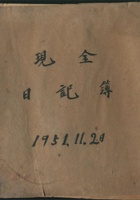 現全
日記簿
1951.11.20